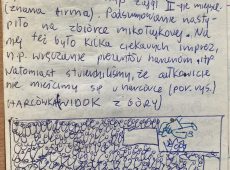 (znana firma). Podsumowanie nastą-
piło na zbiórce mikołajkowej. Na
niej też było kilka ciekawych imprez,
n.p. wręczanie prezentów harcerzom itp
Natomiast stwierdziliśmy, że całkowicie
nie mieścimy się w harcówce (por. rys.)
(HARCÓWKA WIDOK Z GÓRY)